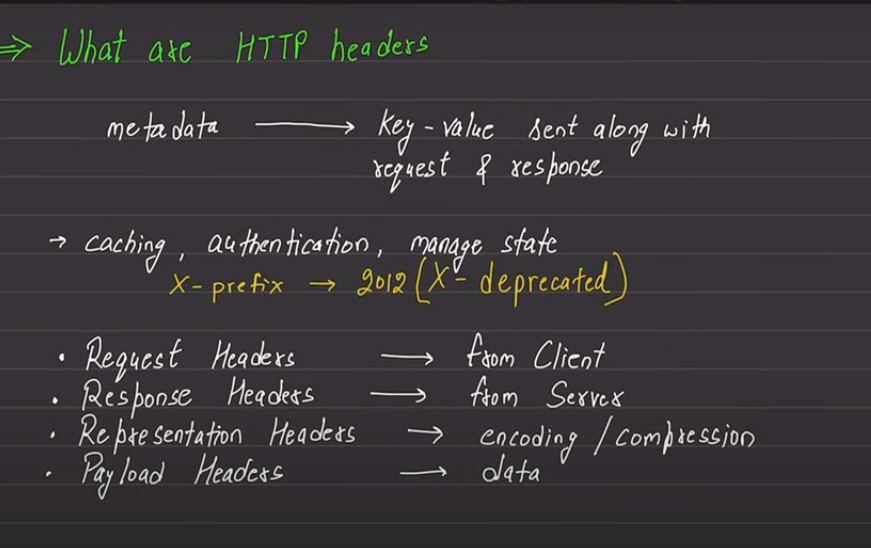 ⇒ What are HTTP headers
metadata ⟶ Key-value sent along with
request & response
→ caching, authentication, manage state
X-prefix → 2012 (X- deprecated)
• Request Headers ⟶ from Client
• Response Headers ⟶ from Server
• Representation Headers → encoding / compression
• Payload Headers ⟶ data